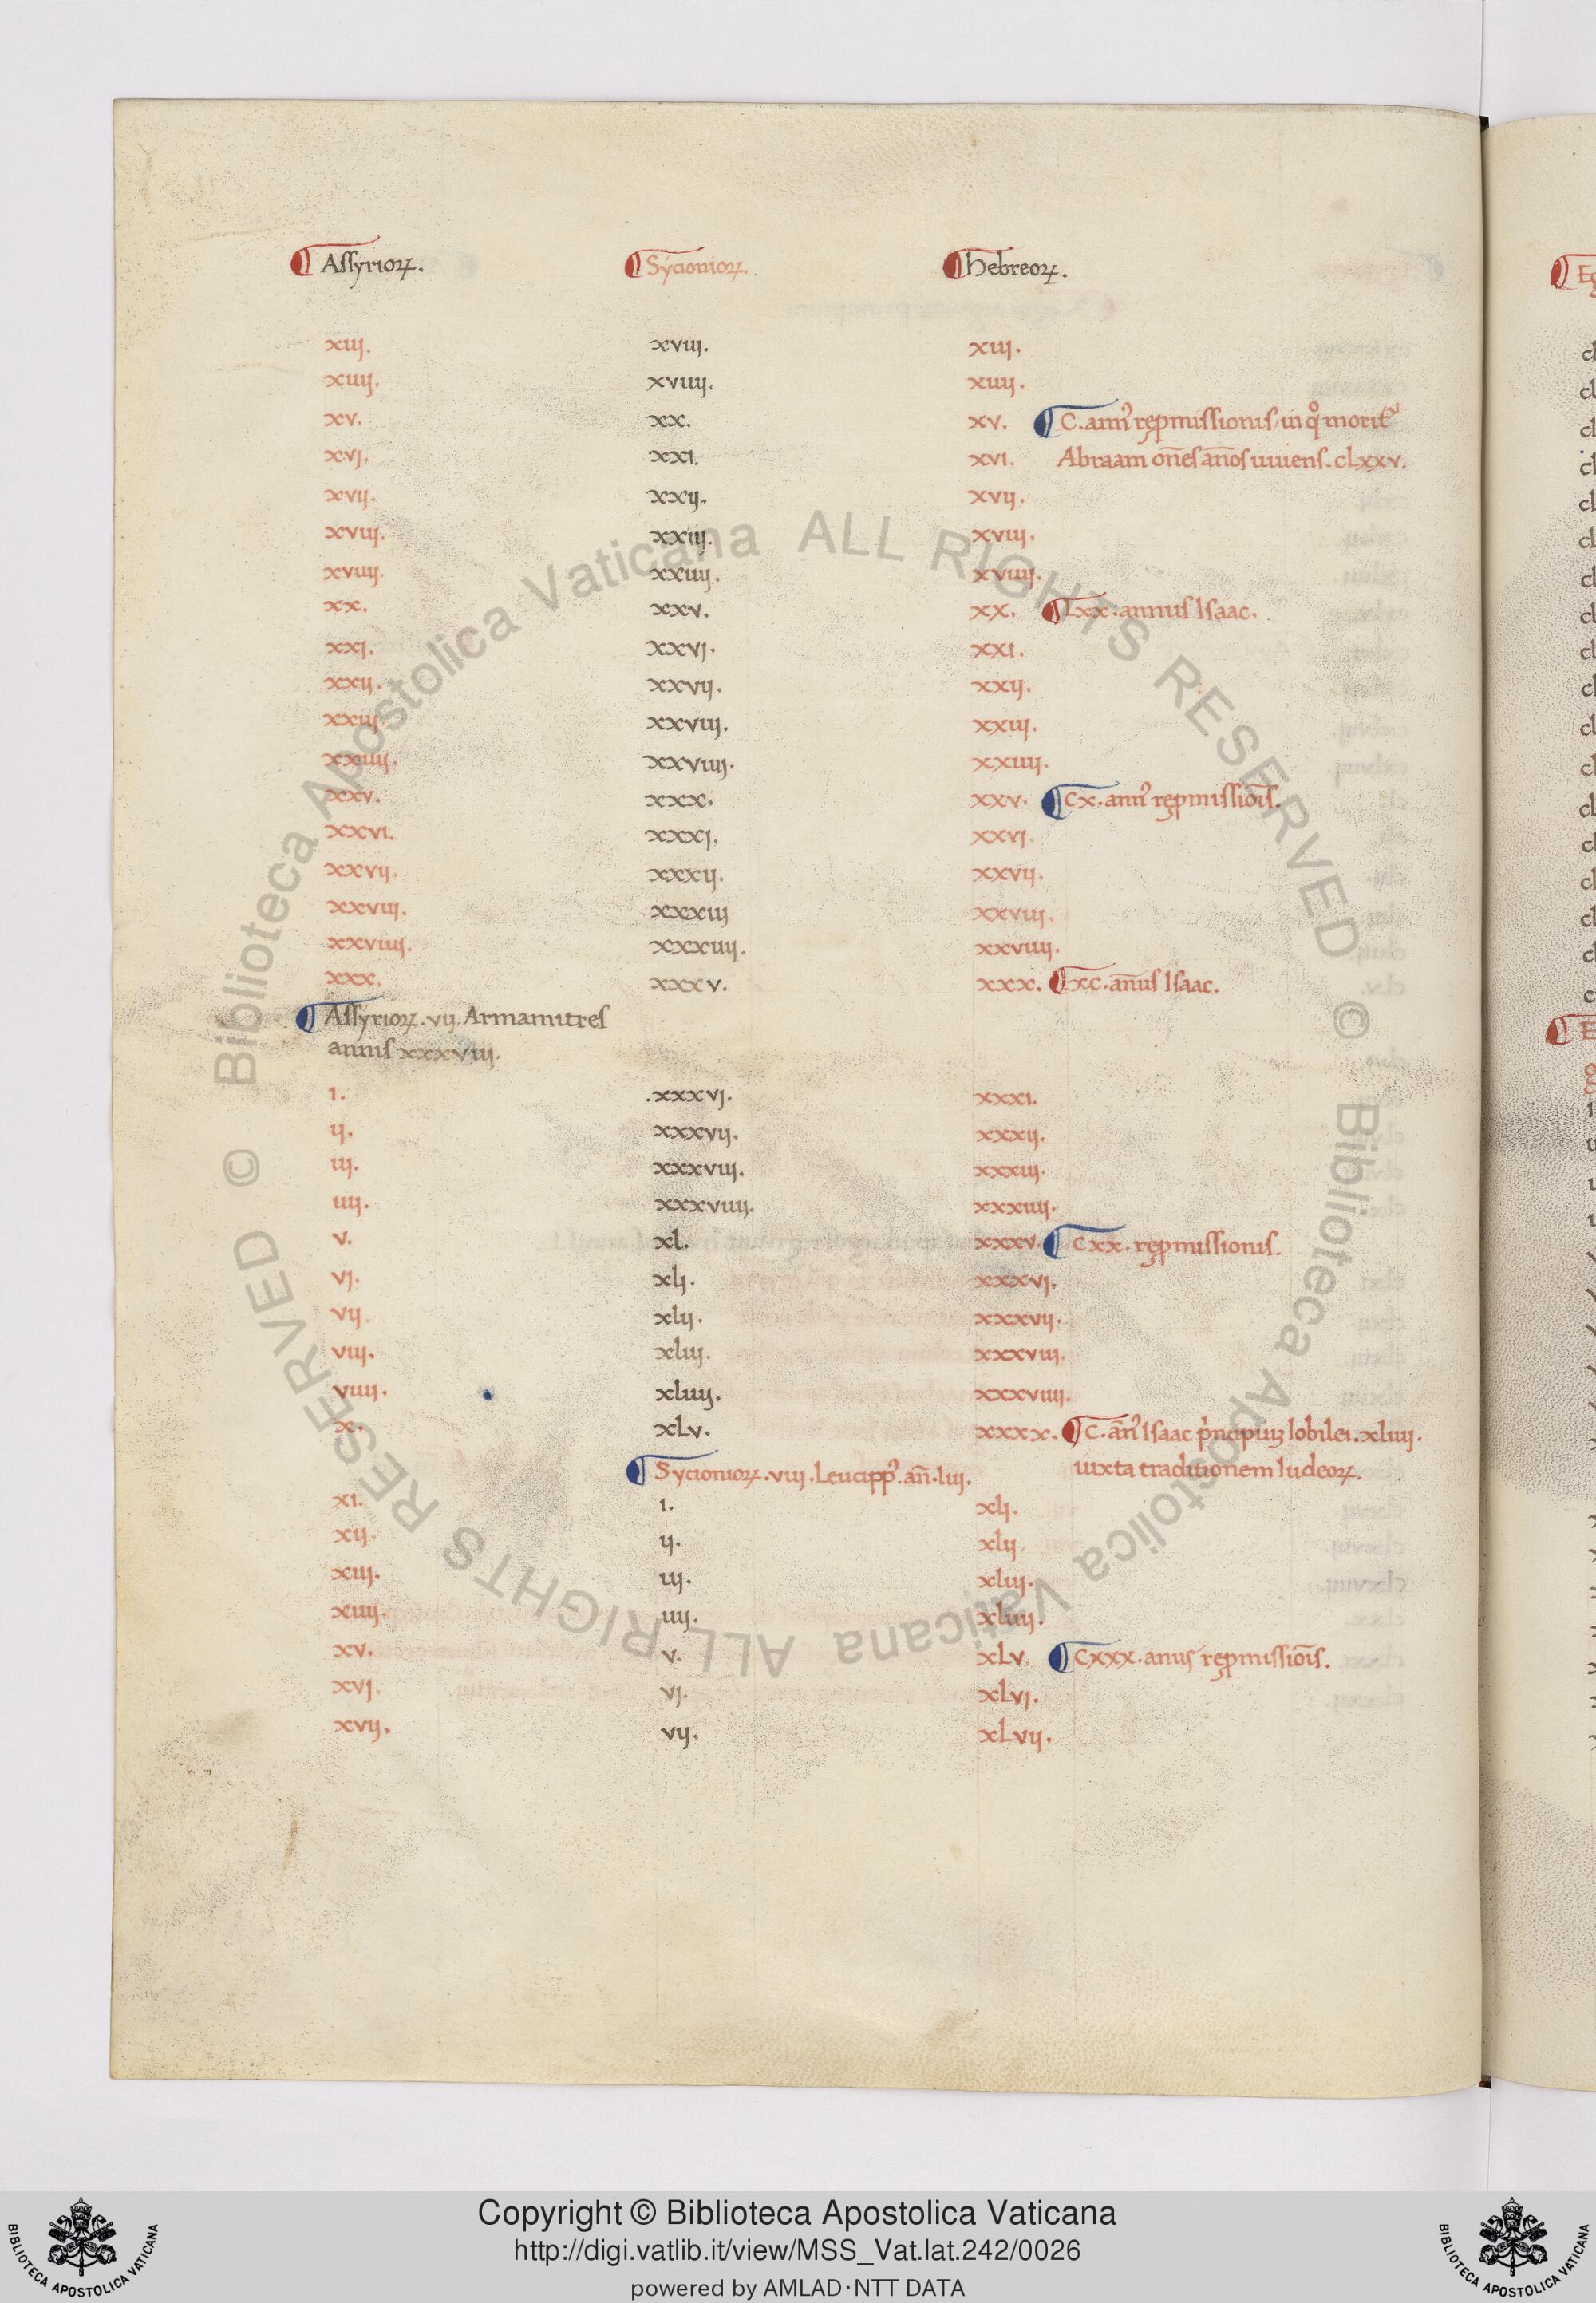 Assyrioꝝ. Sycionioꝝ. hebreoꝝ.
xiij. xviij. xiij.
xiiij. xviiij. xiiij.
xv. xx. xv. C. annꝰ rep̱missionis/ in qͦ moritᷣ
xvj. xxi. xvi. Abraam om̄es an̄os uiuens. clxxv.
xvij. xxij. xvij.
xviij. xxiij. xviij.
xviiij. xxiiij. xviiij.
xx. xxv. xx. Lxx. annus Isaac.
xxj. xxvj. xxi.
xxij. xxvij. xxij.
xxiij. xxviij. xxiij.
xxiiij. xxviiij. xxiiij.
xxv. xxx. xxv. Cx. annꝰ rep̱missiōis.
xxvi. xxxj. xxvj.
xxvij. xxxij. xxvij.
xxviij. xxxiij xxviij.
xxviiij. xxxiiij. xxviiij.
xxx. xxxv. xxx. xc. an̄us Isaac.
Assyrioꝝ. vij. Armamitres
annis xxxviij.
i. .xxxvj. xxxi.
ij. xxxvij. xxxij.
iij. xxxviij. xxxiij.
iiij. xxxviiij. xxxiiij.
v. xl. xxxv. Cxx. rep̱missionis.
vj. xlj. xxxvj.
vij. xlij. xxxvij.
viij. xliij. xxxviij.
viiij. xliiij. xxxviiij.
x. xlv. xxxx. C. an̄ꝰ Isaac p̍ncipiuꝫ Iobilei. xliiij.
iuxta traditionem Iudeoꝝ.
Sycionioꝝ. viij. Leucippꝰ. an̄. liij.
xi. i. xlj.
xij. ij. xlij.
xiij. iij. xliij.
xiiij. iiij. xliiij.
xv. v. xlv. Cxxx. anus rep̱missiōis.
xvj. vj. xlvj.
xvij. vij. xlvij.
© Biblioteca Apostolica Vaticana ALL RIGHTS RESERVED
© Biblioteca Apostolica Vaticana ALL RIGHTS RESERVED
Copyright © Biblioteca Apostolica Vaticana
http://digi.vatlib.it/view/MSS_Vat.lat.242/0026
powered by AMLAD·NTT DATA
BIBLIOTECA APOSTOLICA VATICANA
BIBLIOTECA APOSTOLICA VATICANA